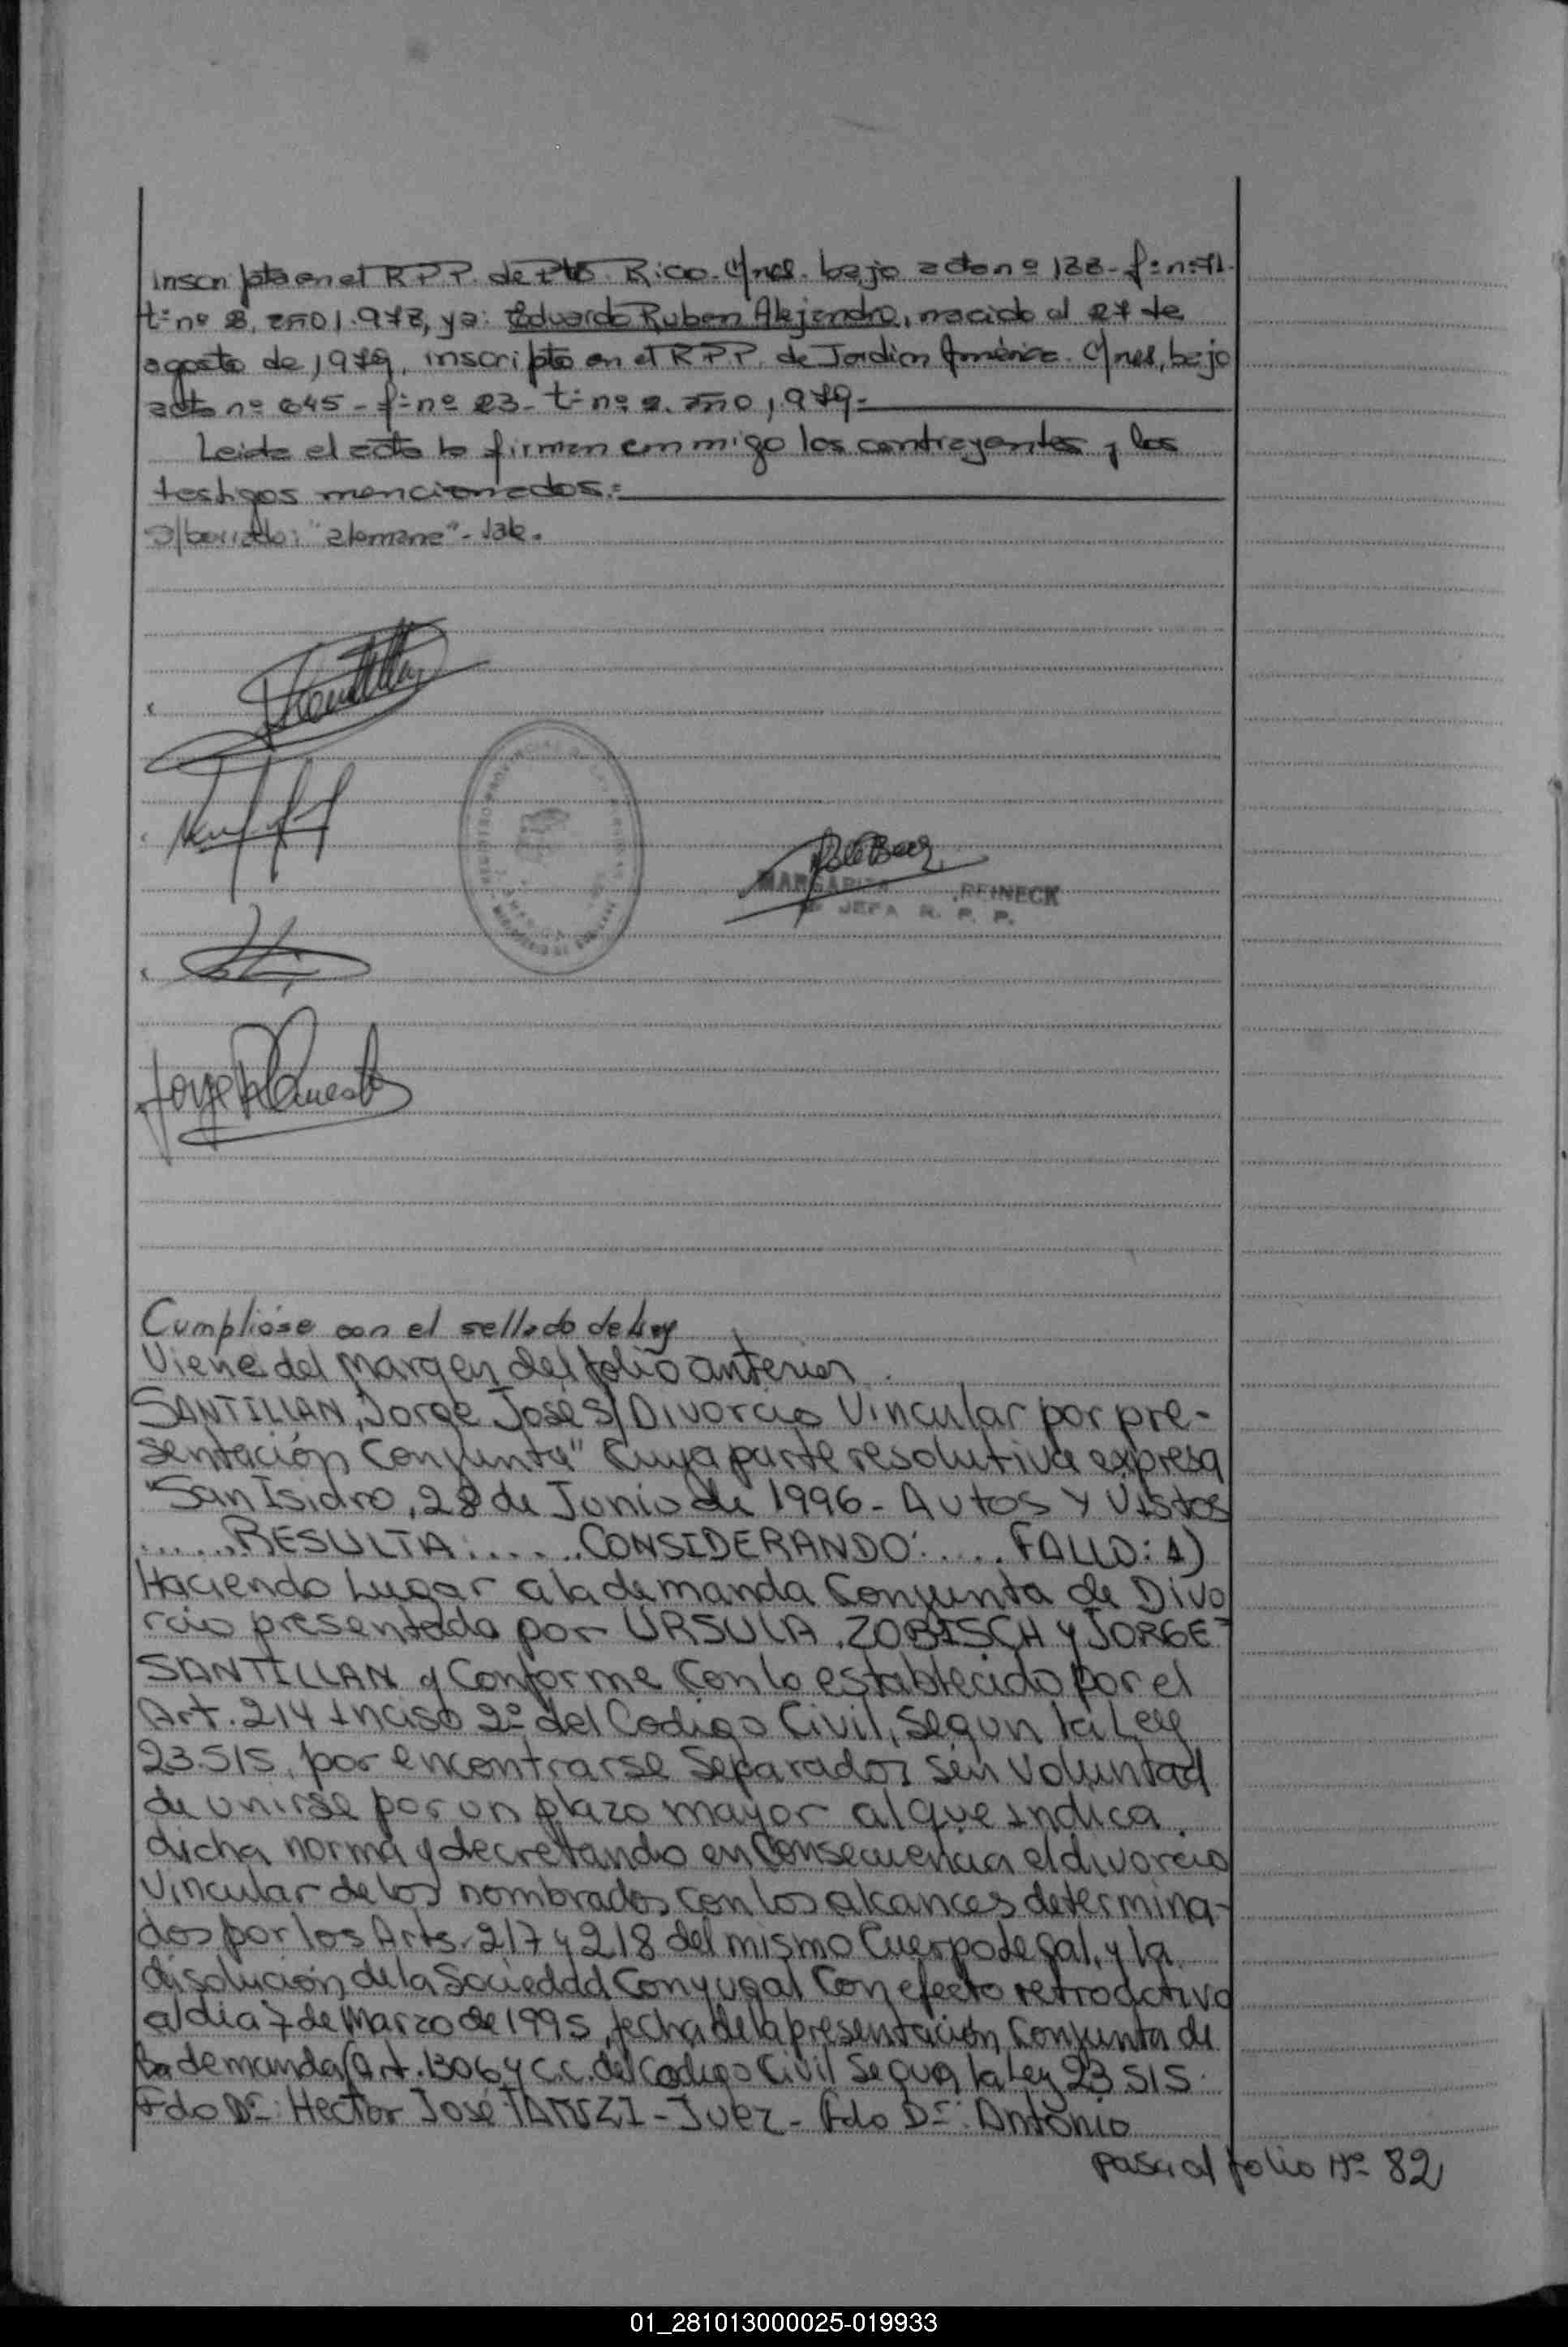 inscripta en el R.P.P. de Pto. Rico. Mnes. bajo acta nº 133- fº nº 71-
tº nº 2, año 1.978, ya: Eduardo Ruben Alejandro, nacido el 27 de
agosto de 1979, inscripto en el R.P.P. de Jardin América. Mnes, bajo
acta nº 645 - fº nº 23 - tº nº 2. año 1,979-
Leida el acta la firman conmigo los contrayentes y los
testigos mencionados.-
S/borrado: "alemana"- Vale.
MARGARITA REINECK
JEFA R. P. P.
Cumplióse con el sellado de Ley
Viene del margen del folio anterior
SANTILLAN, Jorge Jose S/ Divorcio Vincular por pre-
sentación Conjunta" Cuya parte resolutiva expresa
"San Isidro, 28 de Junio de 1996 - Autos y Vistos
...... RESULTA: ...... CONSIDERANDO: ..... FALLO: 1)
Haciendo Lugar a la demanda Conjunta de Divo
rcio presentada por URSULA ZOBISCH y JORGE
SANTILLAN y Conforme con lo establecido por el
Art. 214 Inciso 2º del Codigo Civil, Segun la Ley
23.515, por encontrarse Separados sin voluntad
de unirse por un plazo mayor al que indica
dicha norma y decretando en Consecuencia el divorcio
Vincular de los nombrados con los alcances determina-
dos por los Arts. 217 y 218 del mismo Cuerpo Legal, y la
disolución de la Sociedad Conyugal Con efecto retroactivo
al dia 7 de Marzo de 1995, fecha de la presentación Conjunta de
la demanda (Art. 1306 y C.C. del Codigo Civil Segun la Ley 23.515.
Fdo Dr: Hector José TANZI - Juez - Fdo Dr: Antonio
pasa al folio Nº 82
01_281013000025-019933